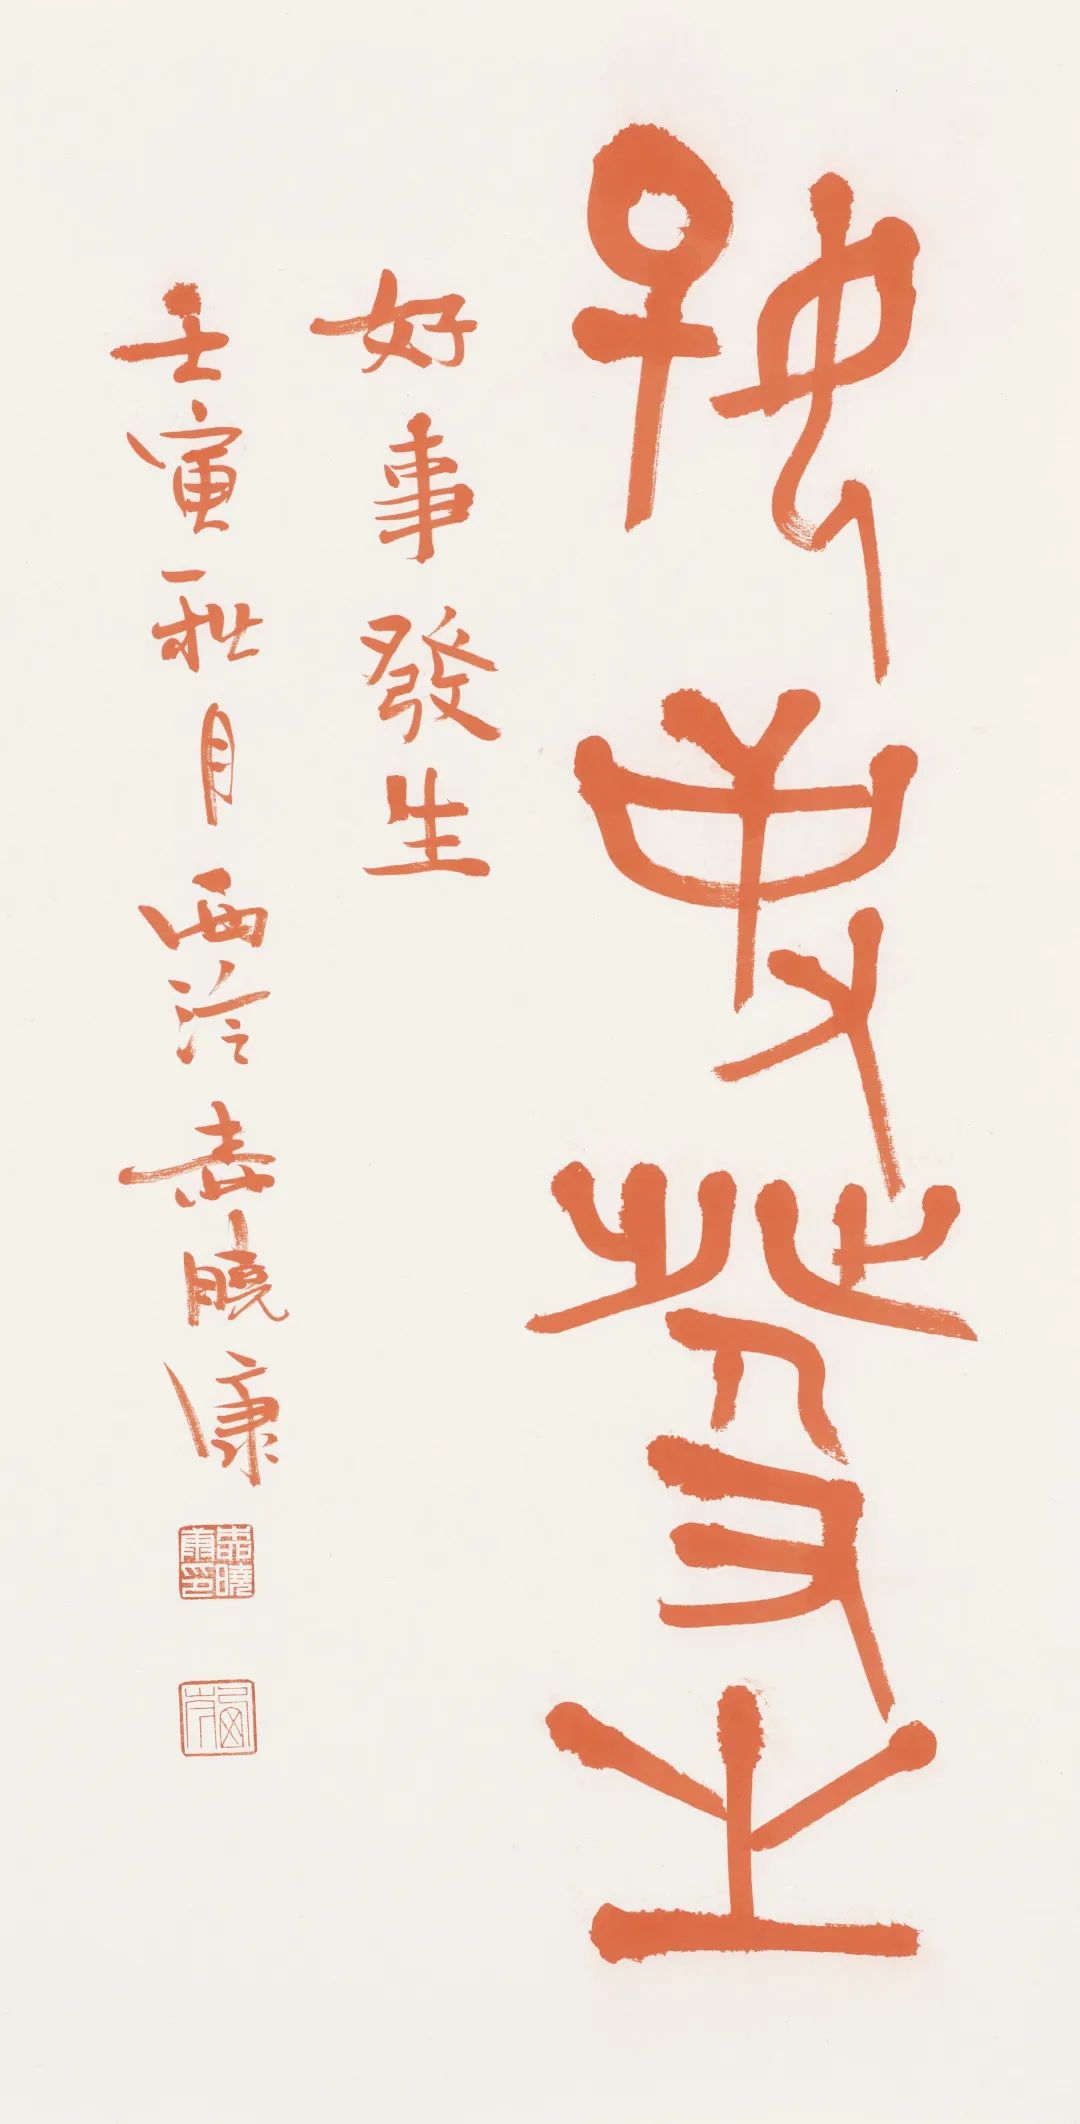 好事發生
好事發生
壬寅秋月西泠袁曉康